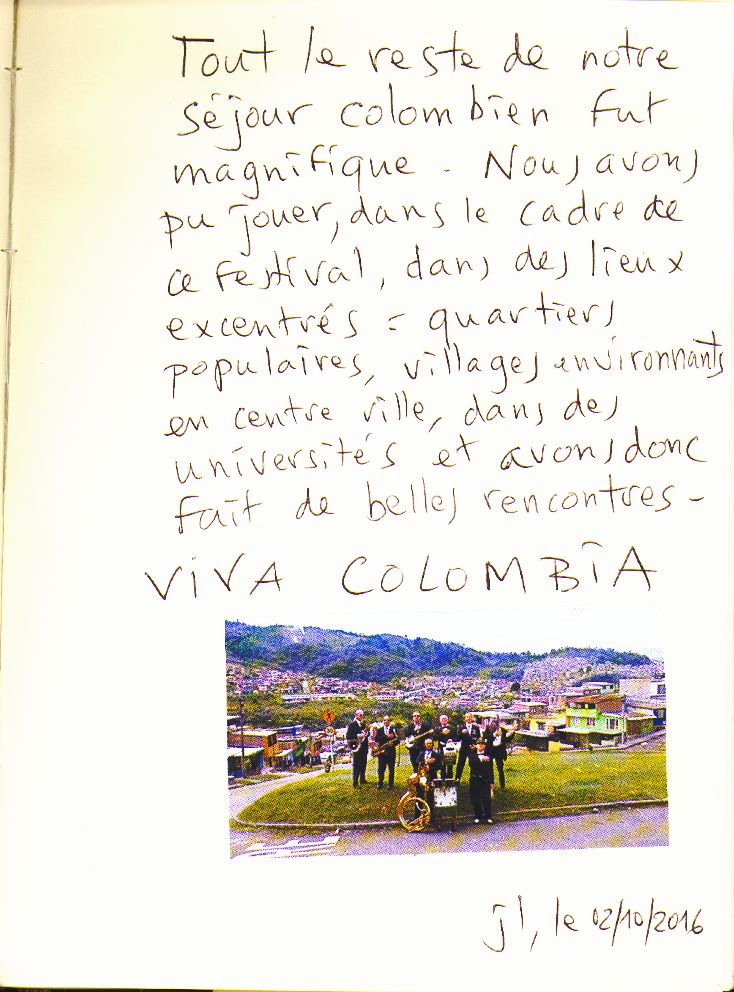 Tout le reste de notre
séjour colombien fut
magnifique. Nous avons
pu jouer, dans le cadre de
ce festival, dans des lieux
excentrés = quartiers
populaires, villages environnants
en centre ville, dans des
universités et avons donc
fait de belles rencontres -
VIVA COLOMBIA
jl, le 02/10/2016